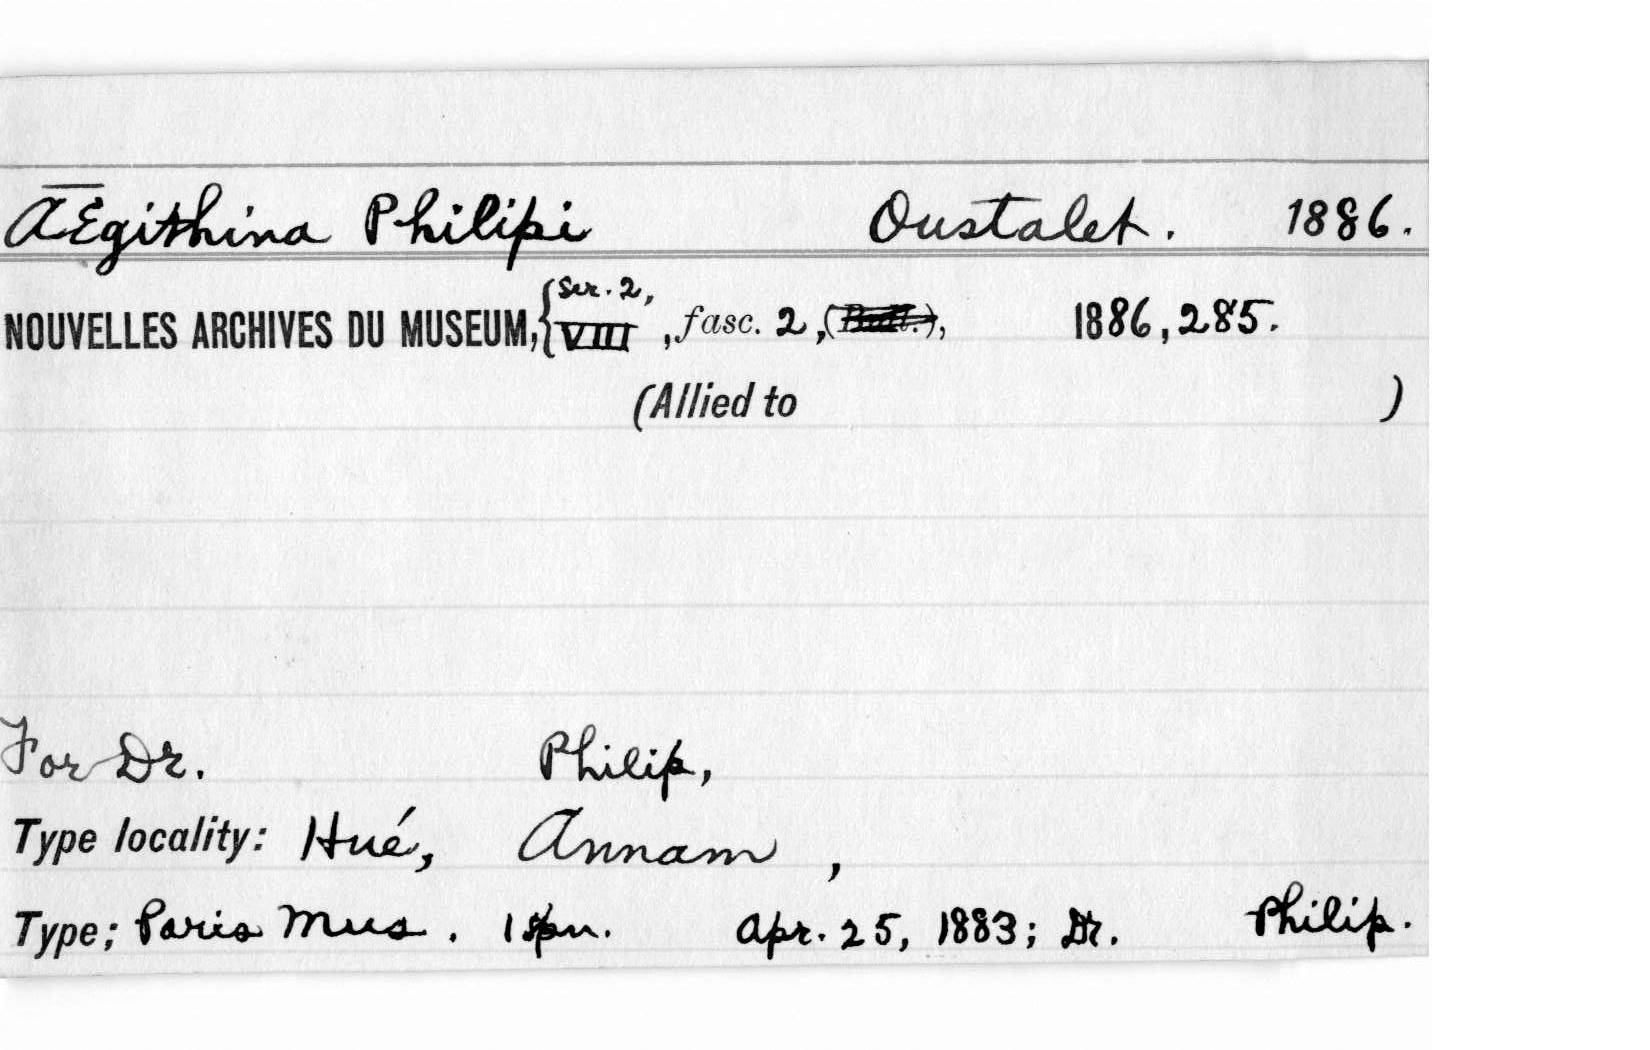 ÆEgithina Philipi Oustalet. 1886.
NOUVELLES ARCHIVES DU MUSEUM, { Ser. 2, VIII, fasc. 2, (Bull.), 1886, 285.
(Allied to )
For Dr. Philip,
Type locality: Hué, Annam,
Type; Paris Mus. 1 spn. Apr. 25, 1883; Dr. Philip.